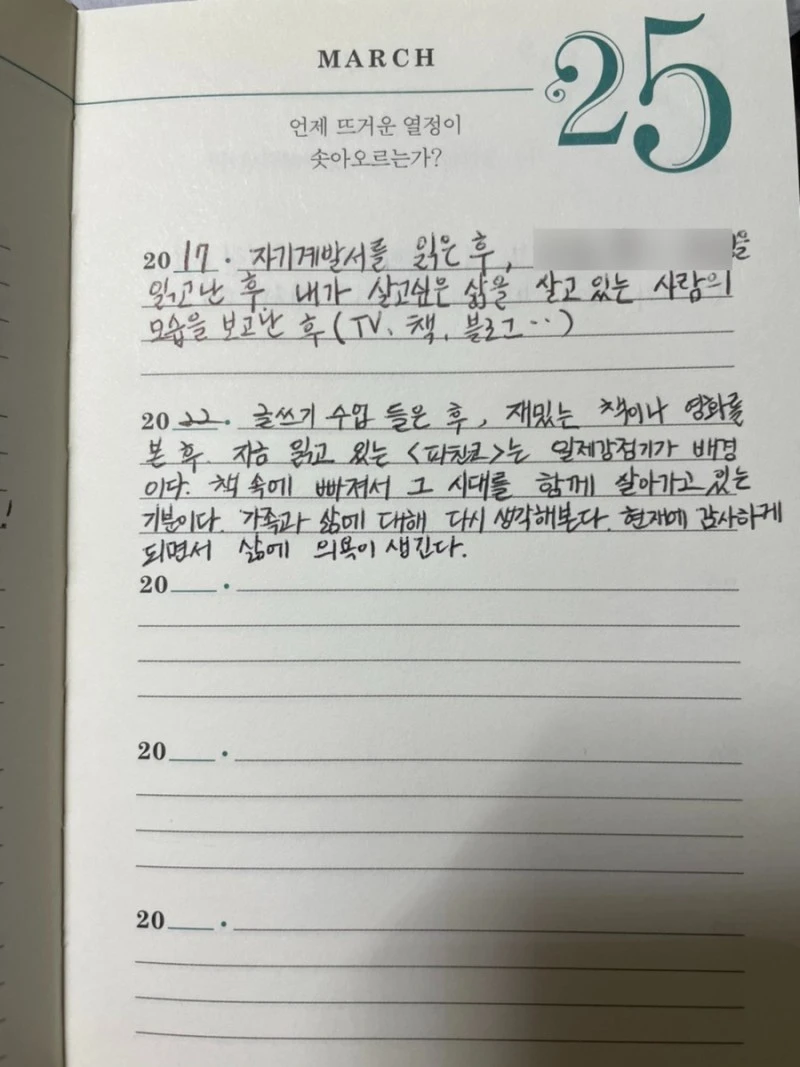 MARCH
25
언제 뜨거운 열정이
솟아오르는가?
2017. 자기계발서를 읽은 후, 을
읽고난 후 내가 살고싶은 삶을 살고 있는 사람의
모습을 보고난 후 (TV, 책, 블로그‥)
2022. 글쓰기 수업 들은 후, 재밌는 책이나 영화를
본 후. 지금 읽고 있는 <파친코>는 일제강점기가 배경
이다. 책 속에 빠져서 그 시대를 함께 살아가고 있는
기분이다. 가족과 삶에 대해 다시 생각해본다. 현재에 감사하게
되면서 삶에 의욕이 생긴다.
20 .
20 .
20 .